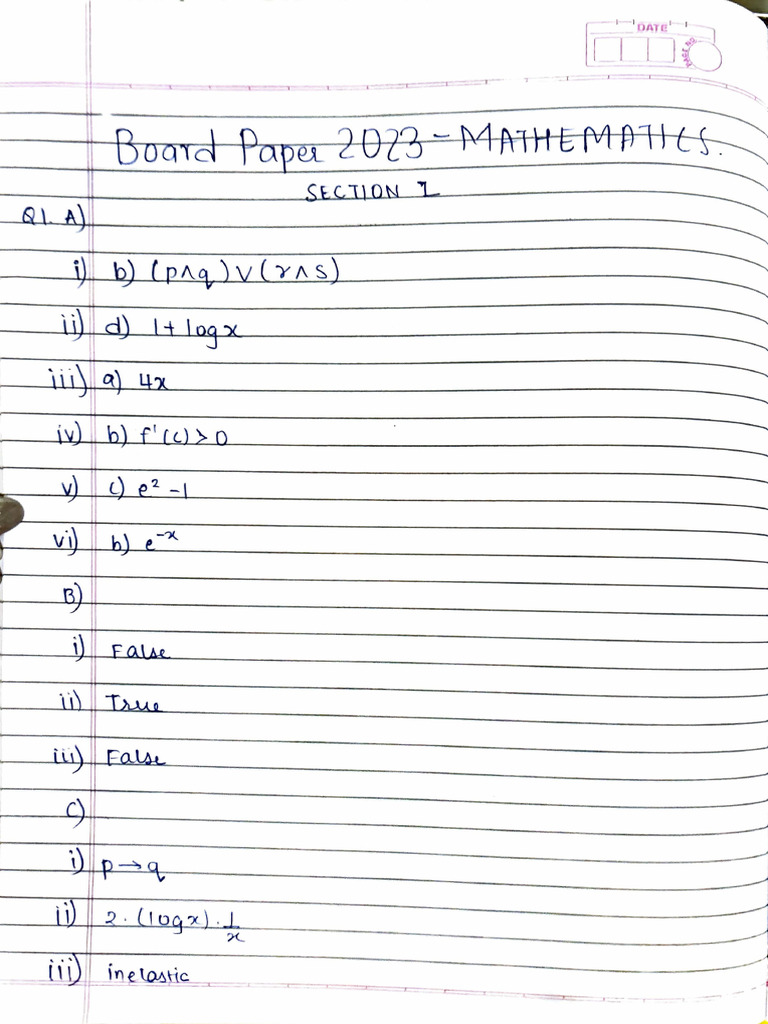 DATE
PAGE NO.
Board Paper 2023 - MATHEMATICS.
SECTION 1
Q1. A)
i) b) (p∧q)∨(r∧s)
ii) d) 1+logx
iii) a) 4x
iv) b) f'(c)>0
v) c) e² -1
vi) b) e⁻ˣ
B)
i) False
ii) True
iii) False
C)
i) p→q
ii) 2·(logx)·1/x
iii) inelastic